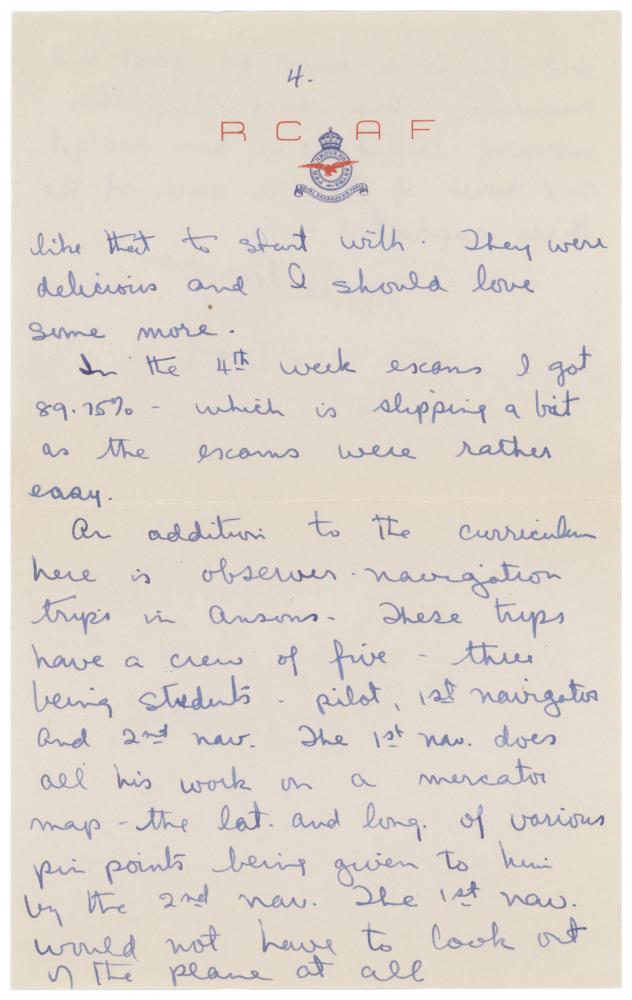 4.
R C A F
like that to start with. They were
delicious and I should love
some more.
In the 4th week exams I got
89.75% - which is slipping a bit
as the exams were rather
easy.
An addition to the curriculum
here is observer-navigation
trips in Ansons. These trips
have a crew of five - three
being students - pilot, 1st navigator
and 2nd nav. The 1st nav. does
all his work on a mercator
map - the lat. and long. of various
pin points being given to him
by the 2nd nav. The 1st nav.
would not have to look out
of the plane at all